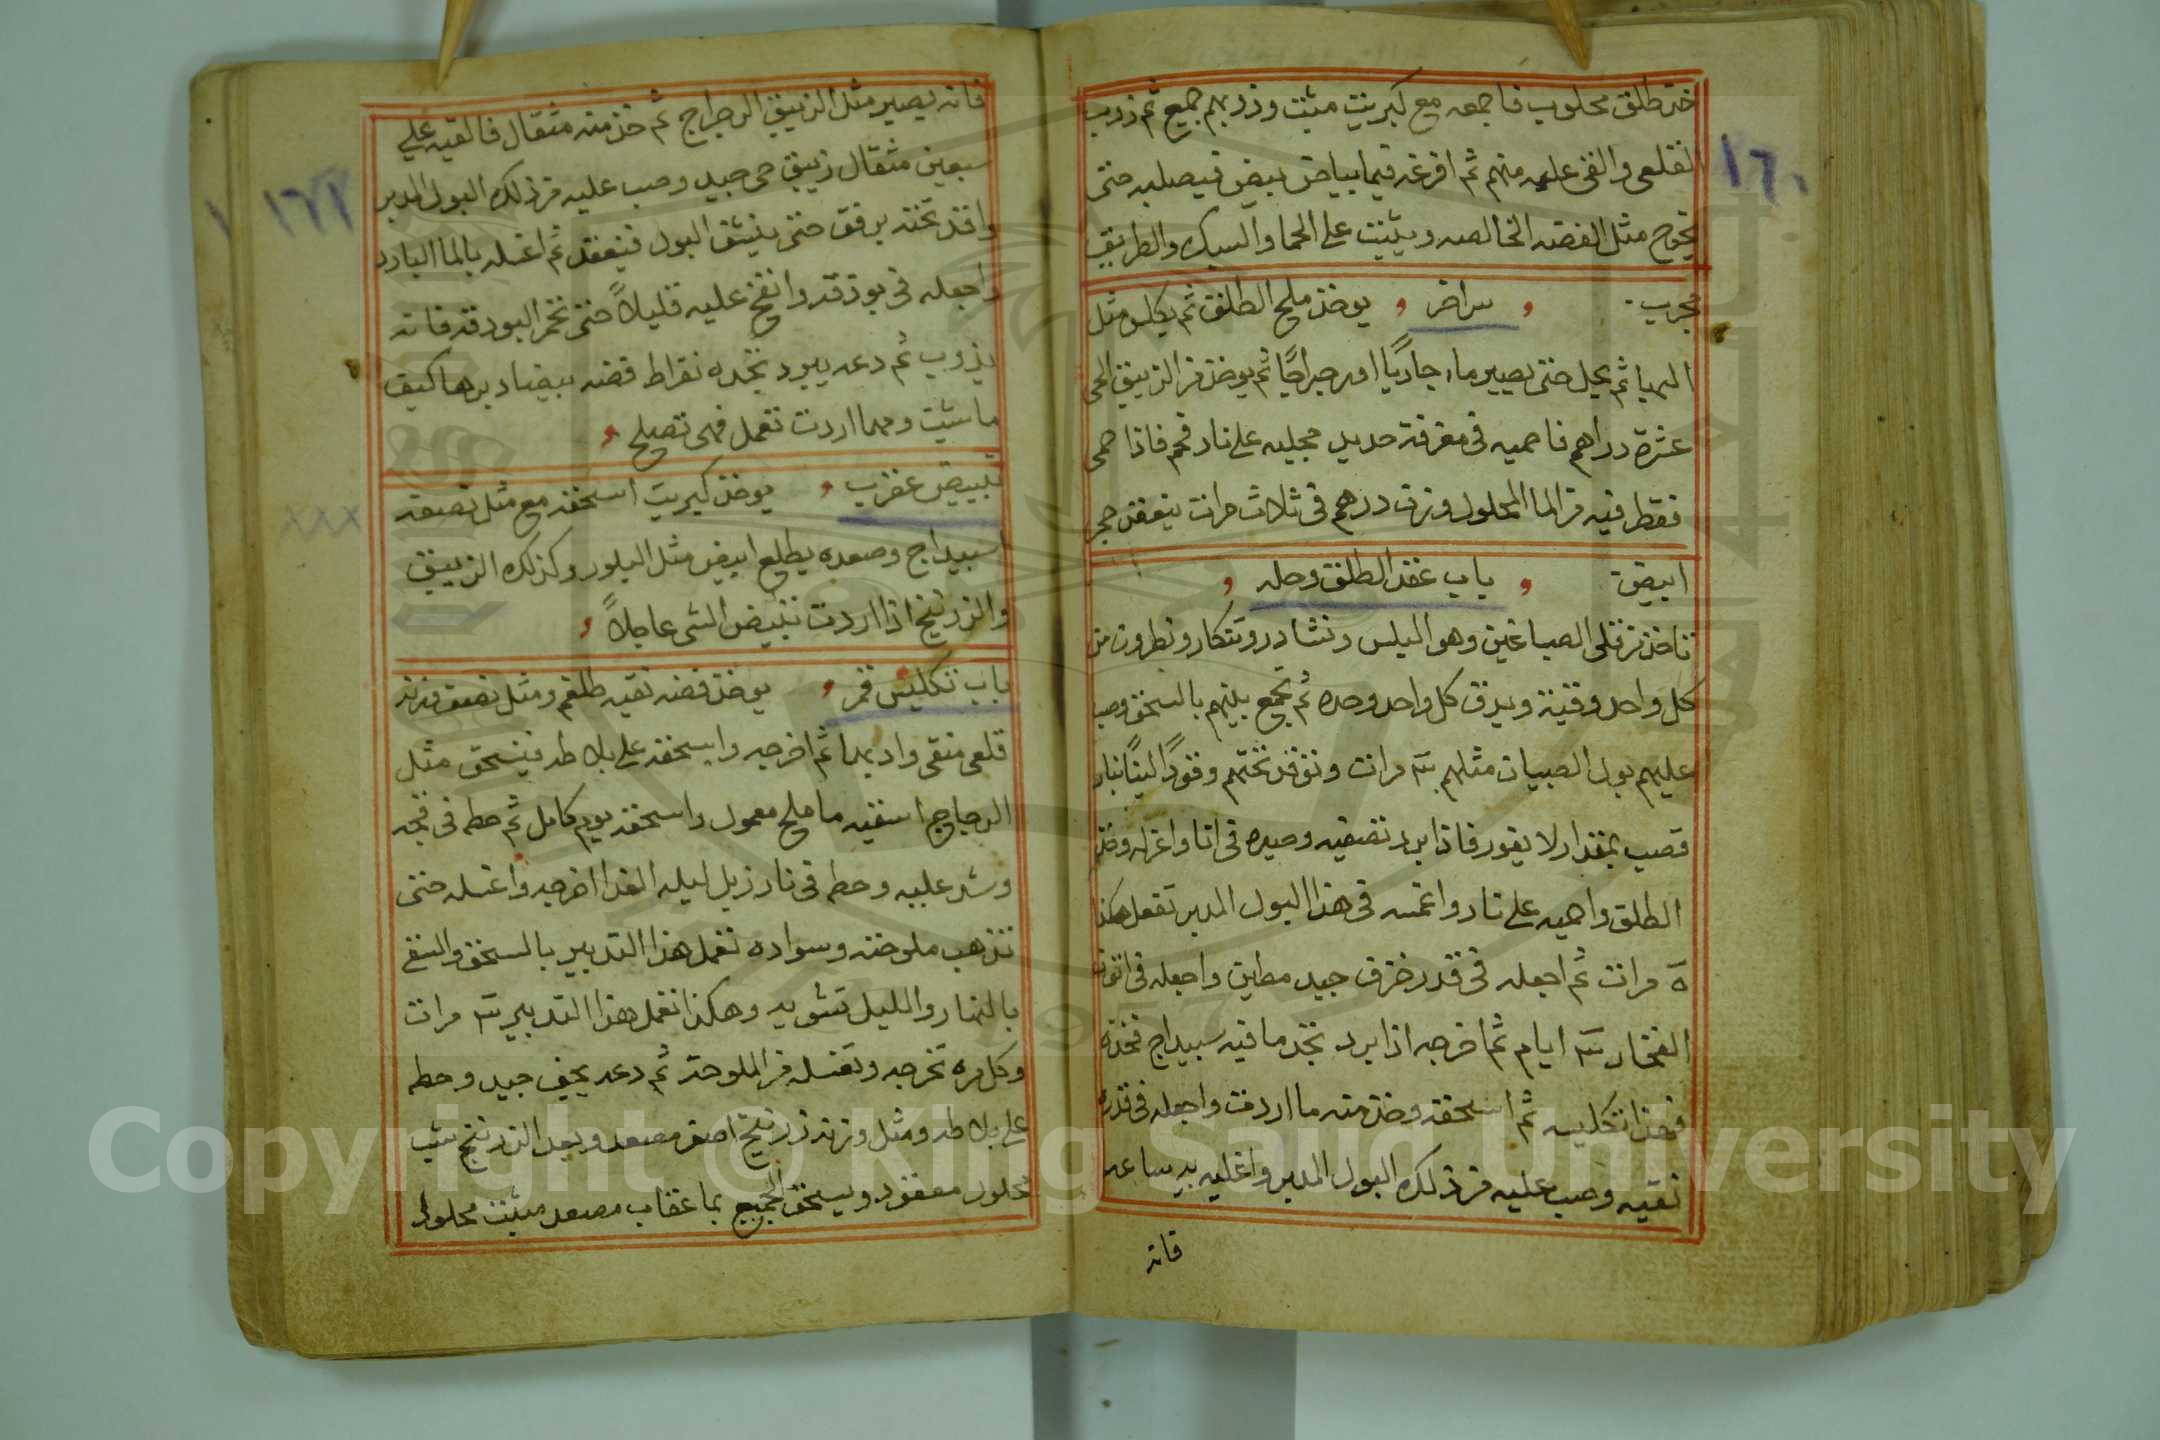 خذ طلق محلوب فاجمعه مع كبريت مثبت وزد بهم جميع ثم ذوب
القلعي والقي عليه منهم ثم افرغه فيما بياض بيض فيصلبه حتى
يخرج مثل الفضه الخالصه ويثبت على الحما والسبك والطريق
مجرب سر اخر يوخذ ملح الطلق ثم يكلس مثل
الهبا ثم يحل حتى يصير ماء جاريًا او رجراجًا ثم يوخذ من الزيبق الحي
عشرة دراهم فاحميه في مغرفة حديد مجليه على نار فحم فاذا حمي
فقطر فيه من الما المحلول وزن درهم في ثلاث مرات ينعقد حجر
ابيض باب عقد الطلق وحله
تاخذ من قلي الصباغين وهو اليلس ونشادر وتنكار ونطرون من
كل واحد وقية ويدق كل واحد وحده ثم تجمع بينهم بالسحق وصب
عليهم بول الصبيان مثلهم مرات وتوقد تحتهم وقودًا لينًا بنار
قصب بمقدار لا يفور فاذا برد تصفيه وصيره في انا واعزله وخذ
الطلق واحميه على نار واغمسه في هذا البول المدبر تفعل هكذا
ه مرات ثم اجعله في قدر خزف جيد مطين واجعله في اتون
الفخار ايام ثم اخرجه اذا برد تجد ما فيه سبيداج فخذه
فهذا تكليسه ثم اسحقه وخذ منه ما اردت واجعله في قدرة
نقيه وصب عليه من ذلك البول المدبر واغليه به ساعه
فانه
١٦٠
فانه يصير مثل الزيبق الرجراج ثم خذ منه مثقال فالقيه على
سبعين مثقال زيبق حي جيد وصب عليه من ذلك البول المدبر
واقد تحته برفق حتى ينشف البول فينعقد ثم اغسله بالما البارد
واجعله في بودقه وانفخ عليه قليلاً حتى تحمر البودقه فانه
يذوب ثم دعه يبرد تجده نقراط فضه بيضا دبرها كيف
ما شيت ومهما اردت تعمل فهي تصلح
تبييض عقرب يوخذ كبريت اسحقه مع مثل نصفه
اسبيداج وصعده يطلع ابيض مثل البلور وكذلك الزيبق
والزرنيخ اذا اردت تبيض الشي عاجلاً
باب تكليس قمر يوخذ فضه نقيه طلقم ومثل نصف وزنه
قلعي منقى واديهما ثم اخرجه واسحقه على بلاطه فينسحق مثل
الزجاج اسقيه ما ملح معمول واسحقه يوم كامل ثم حطه في قحه
وشد عليه وحطه في نار زبل ليله الغد اخرجه واغسله حتى
تذهب ملوحته وسواده تعمل هذا التدبير بالسحق والسقي
بالنهار والليل تشويه وهكذا تعمل هذا التدبير مرات
وكل مره تخرجه وتغسله من الملوحة ثم دعه يجف جيد وحطه
على بلاطه ومثل وزنه زرنيخ اصفر مصعد وبعد الزرنيخ شب
محلول معقود ويسحق الجميع بما عقاب مصعد مثبت محلول
١٦١
Copyright © King Saud University